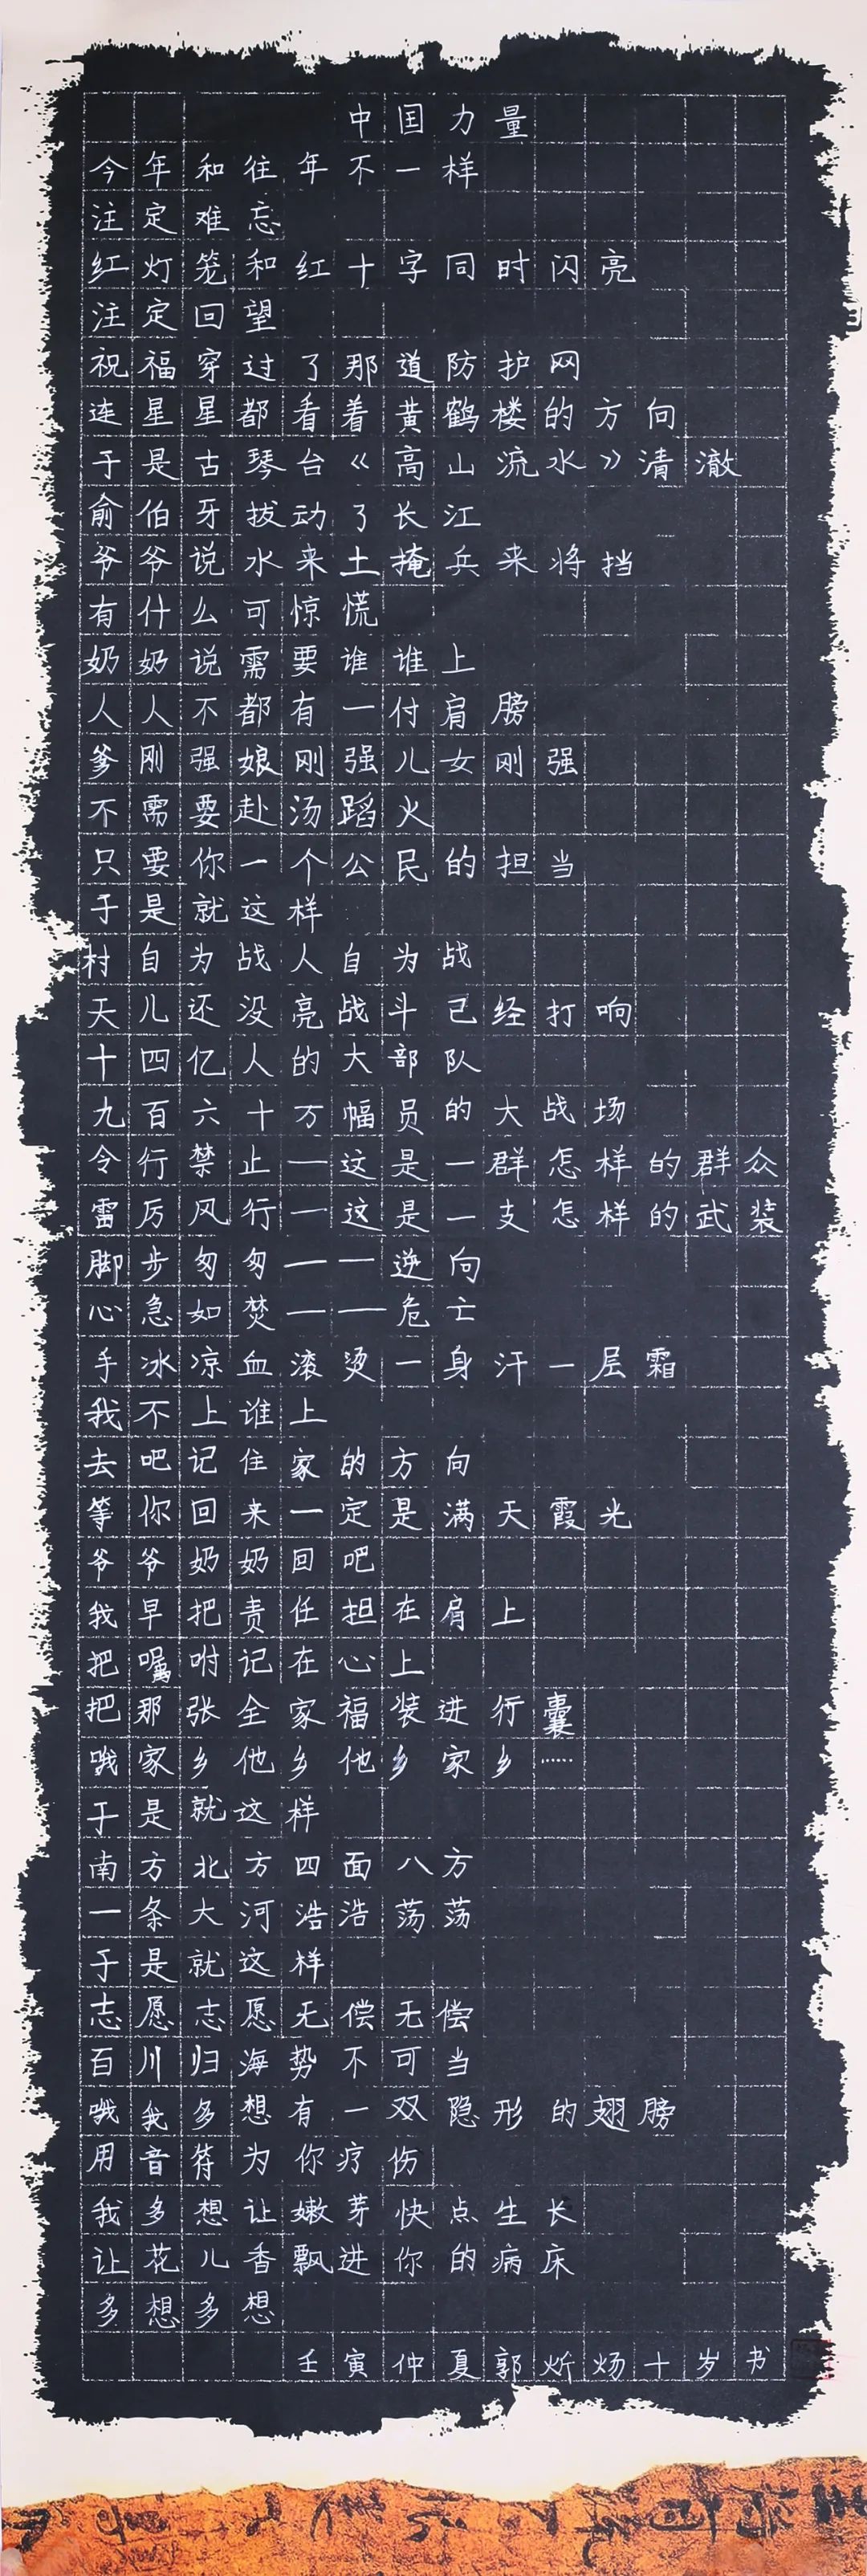 中国力量
今年和往年不一样
注定难忘
红灯笼和红十字同时闪亮
注定回望
祝福穿过了那道防护网
连星星都看着黄鹤楼的方向
于是古琴台《高山流水》清澈
俞伯牙拔动了长江
爷爷说水来土掩兵来将挡
有什么可惊慌
奶奶说需要谁谁上
人人不都有一付肩膀
爹刚强娘刚强儿女刚强
不需要赴汤蹈火
只要你一个公民的担当
于是就这样
村自为战人自为战
天儿还没亮战斗已经打响
十四亿人的大部队
九百六十万幅员的大战场
令行禁止一这是一群怎样的群众
雷厉风行一这是一支怎样的武装
脚步匆匆——逆向
心急如焚——危亡
手冰凉血滚烫一身汗一层霜
我不上谁上
去吧记住家的方向
等你回来一定是满天霞光
爷爷奶奶回吧
我早把责任担在肩上
把嘱咐记在心上
把那张全家福装进行囊
哦家乡他乡他乡家乡……
于是就这样
南方北方四面八方
一条大河浩浩荡荡
于是就这样
志愿志愿无偿无偿
百川归海势不可当
哦我多想有一双隐形的翅膀
用音符为你疗伤
我多想让嫩芽快点生长
让花儿香飘进你的病床
多想多想
壬寅仲夏郭炘炀十岁书